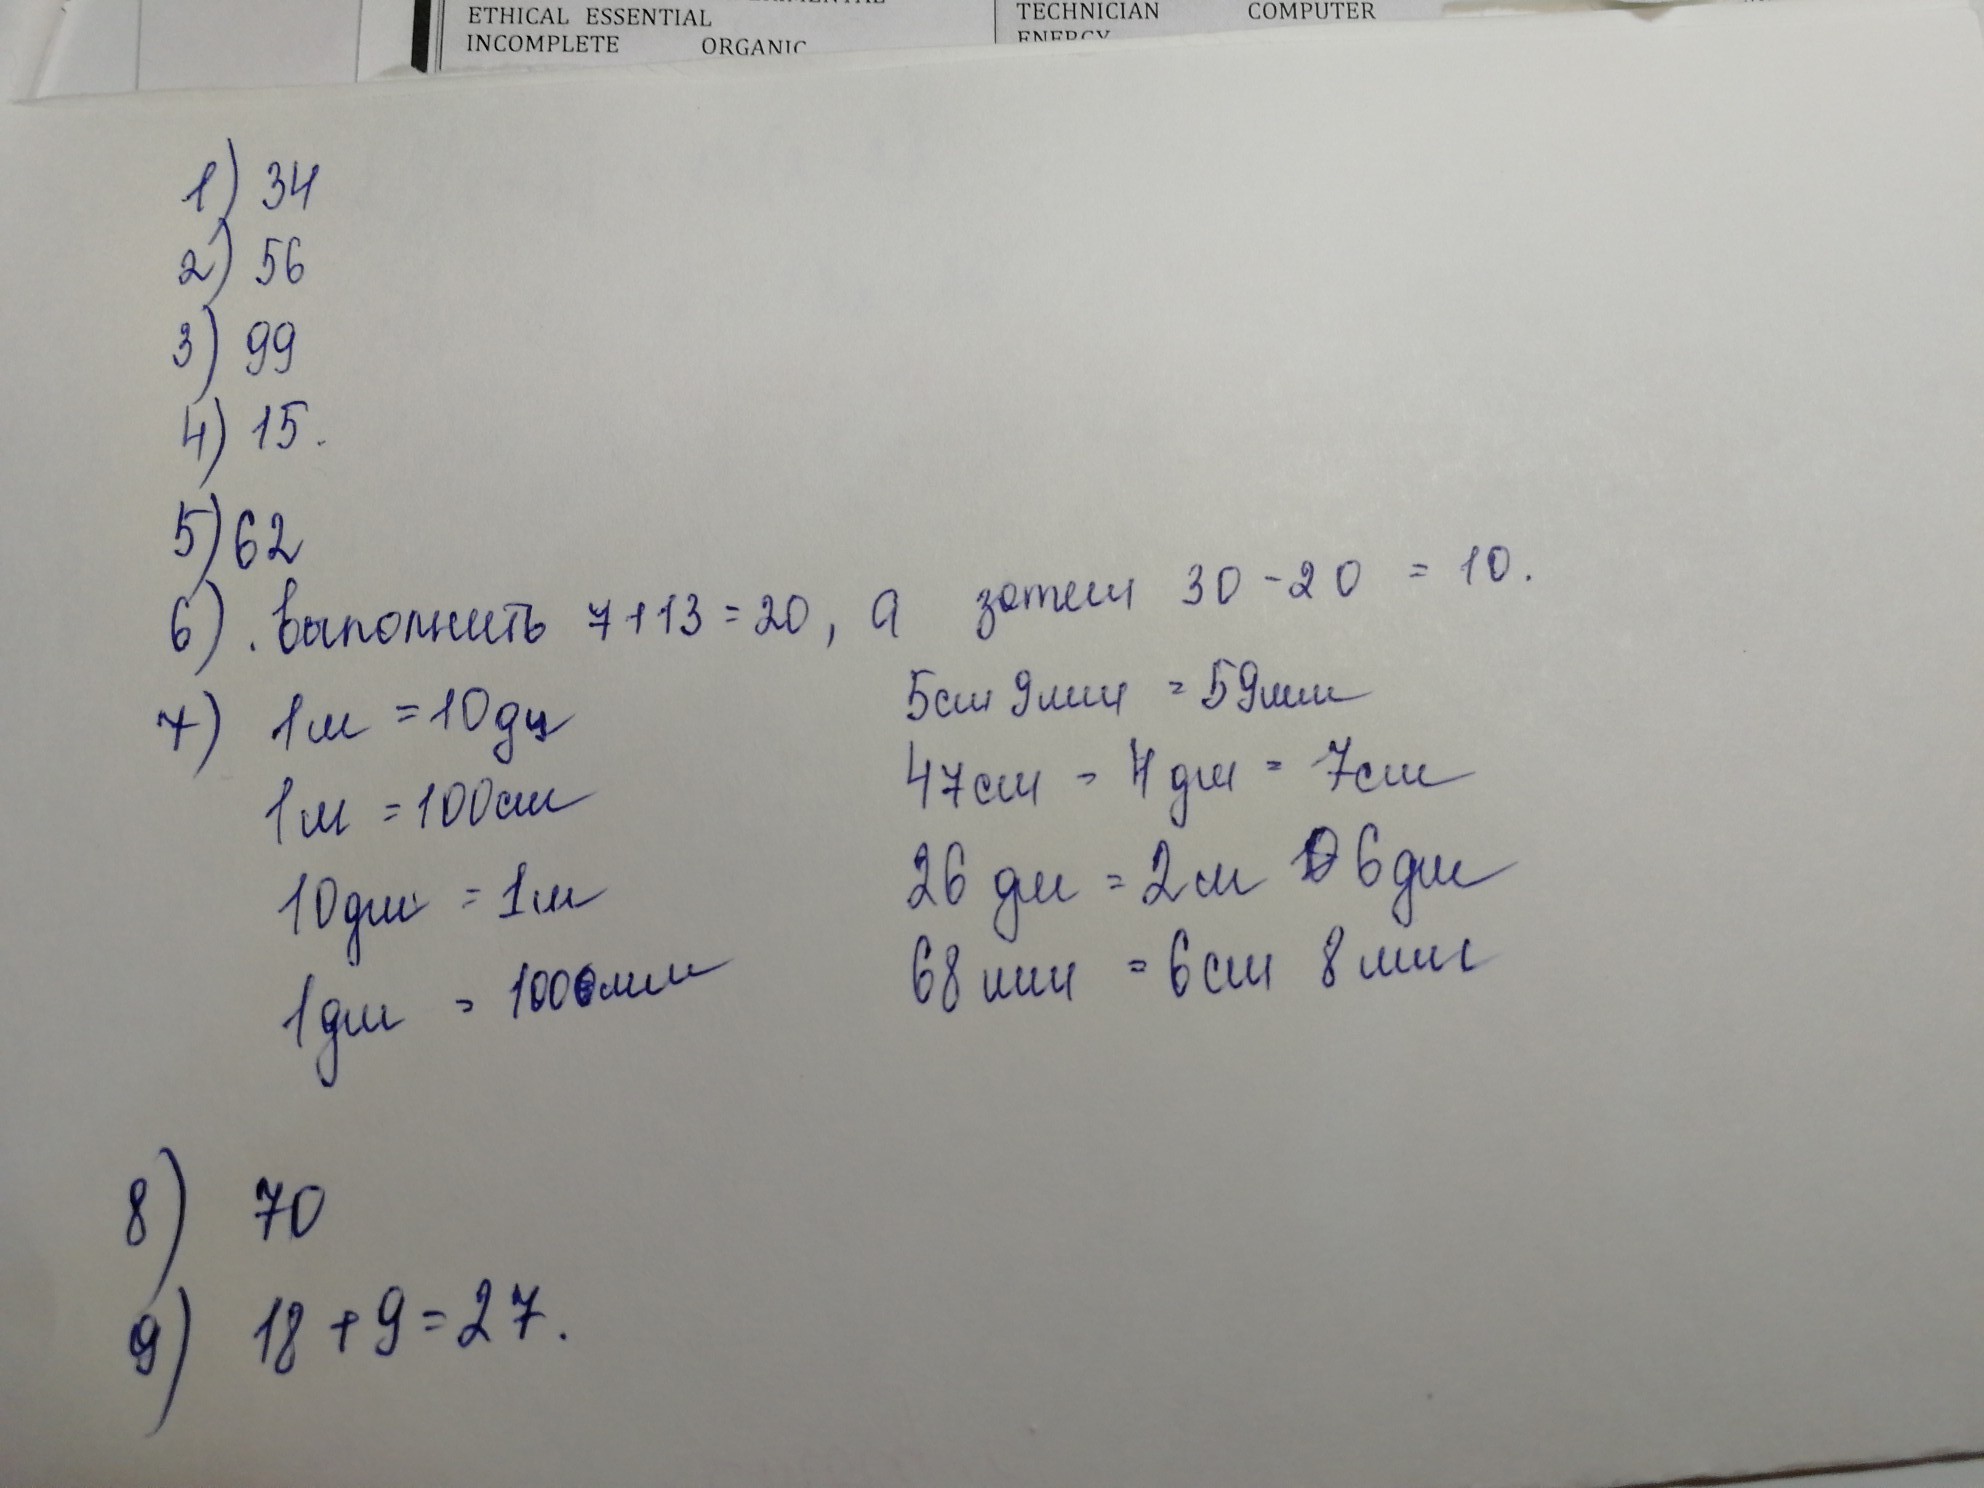 ETHICAL ESSENTIAL
INCOMPLETE ORGANIC
TECHNICIAN COMPUTER
ENERGY
1) 34
2) 56
3) 99
4) 15.
5) 62
6) . Выполнить 7+13=20, а затем 30-20 = 10.
7) 1м = 10дц
1м = 100см
10дм = 1м
1дм = 100мм
5см 9мм = 59мм
47см = 4дм = 7см
26 дм = 2м 6дм
68мм = 6см 8мм
8) 70
9) 18+9=27.